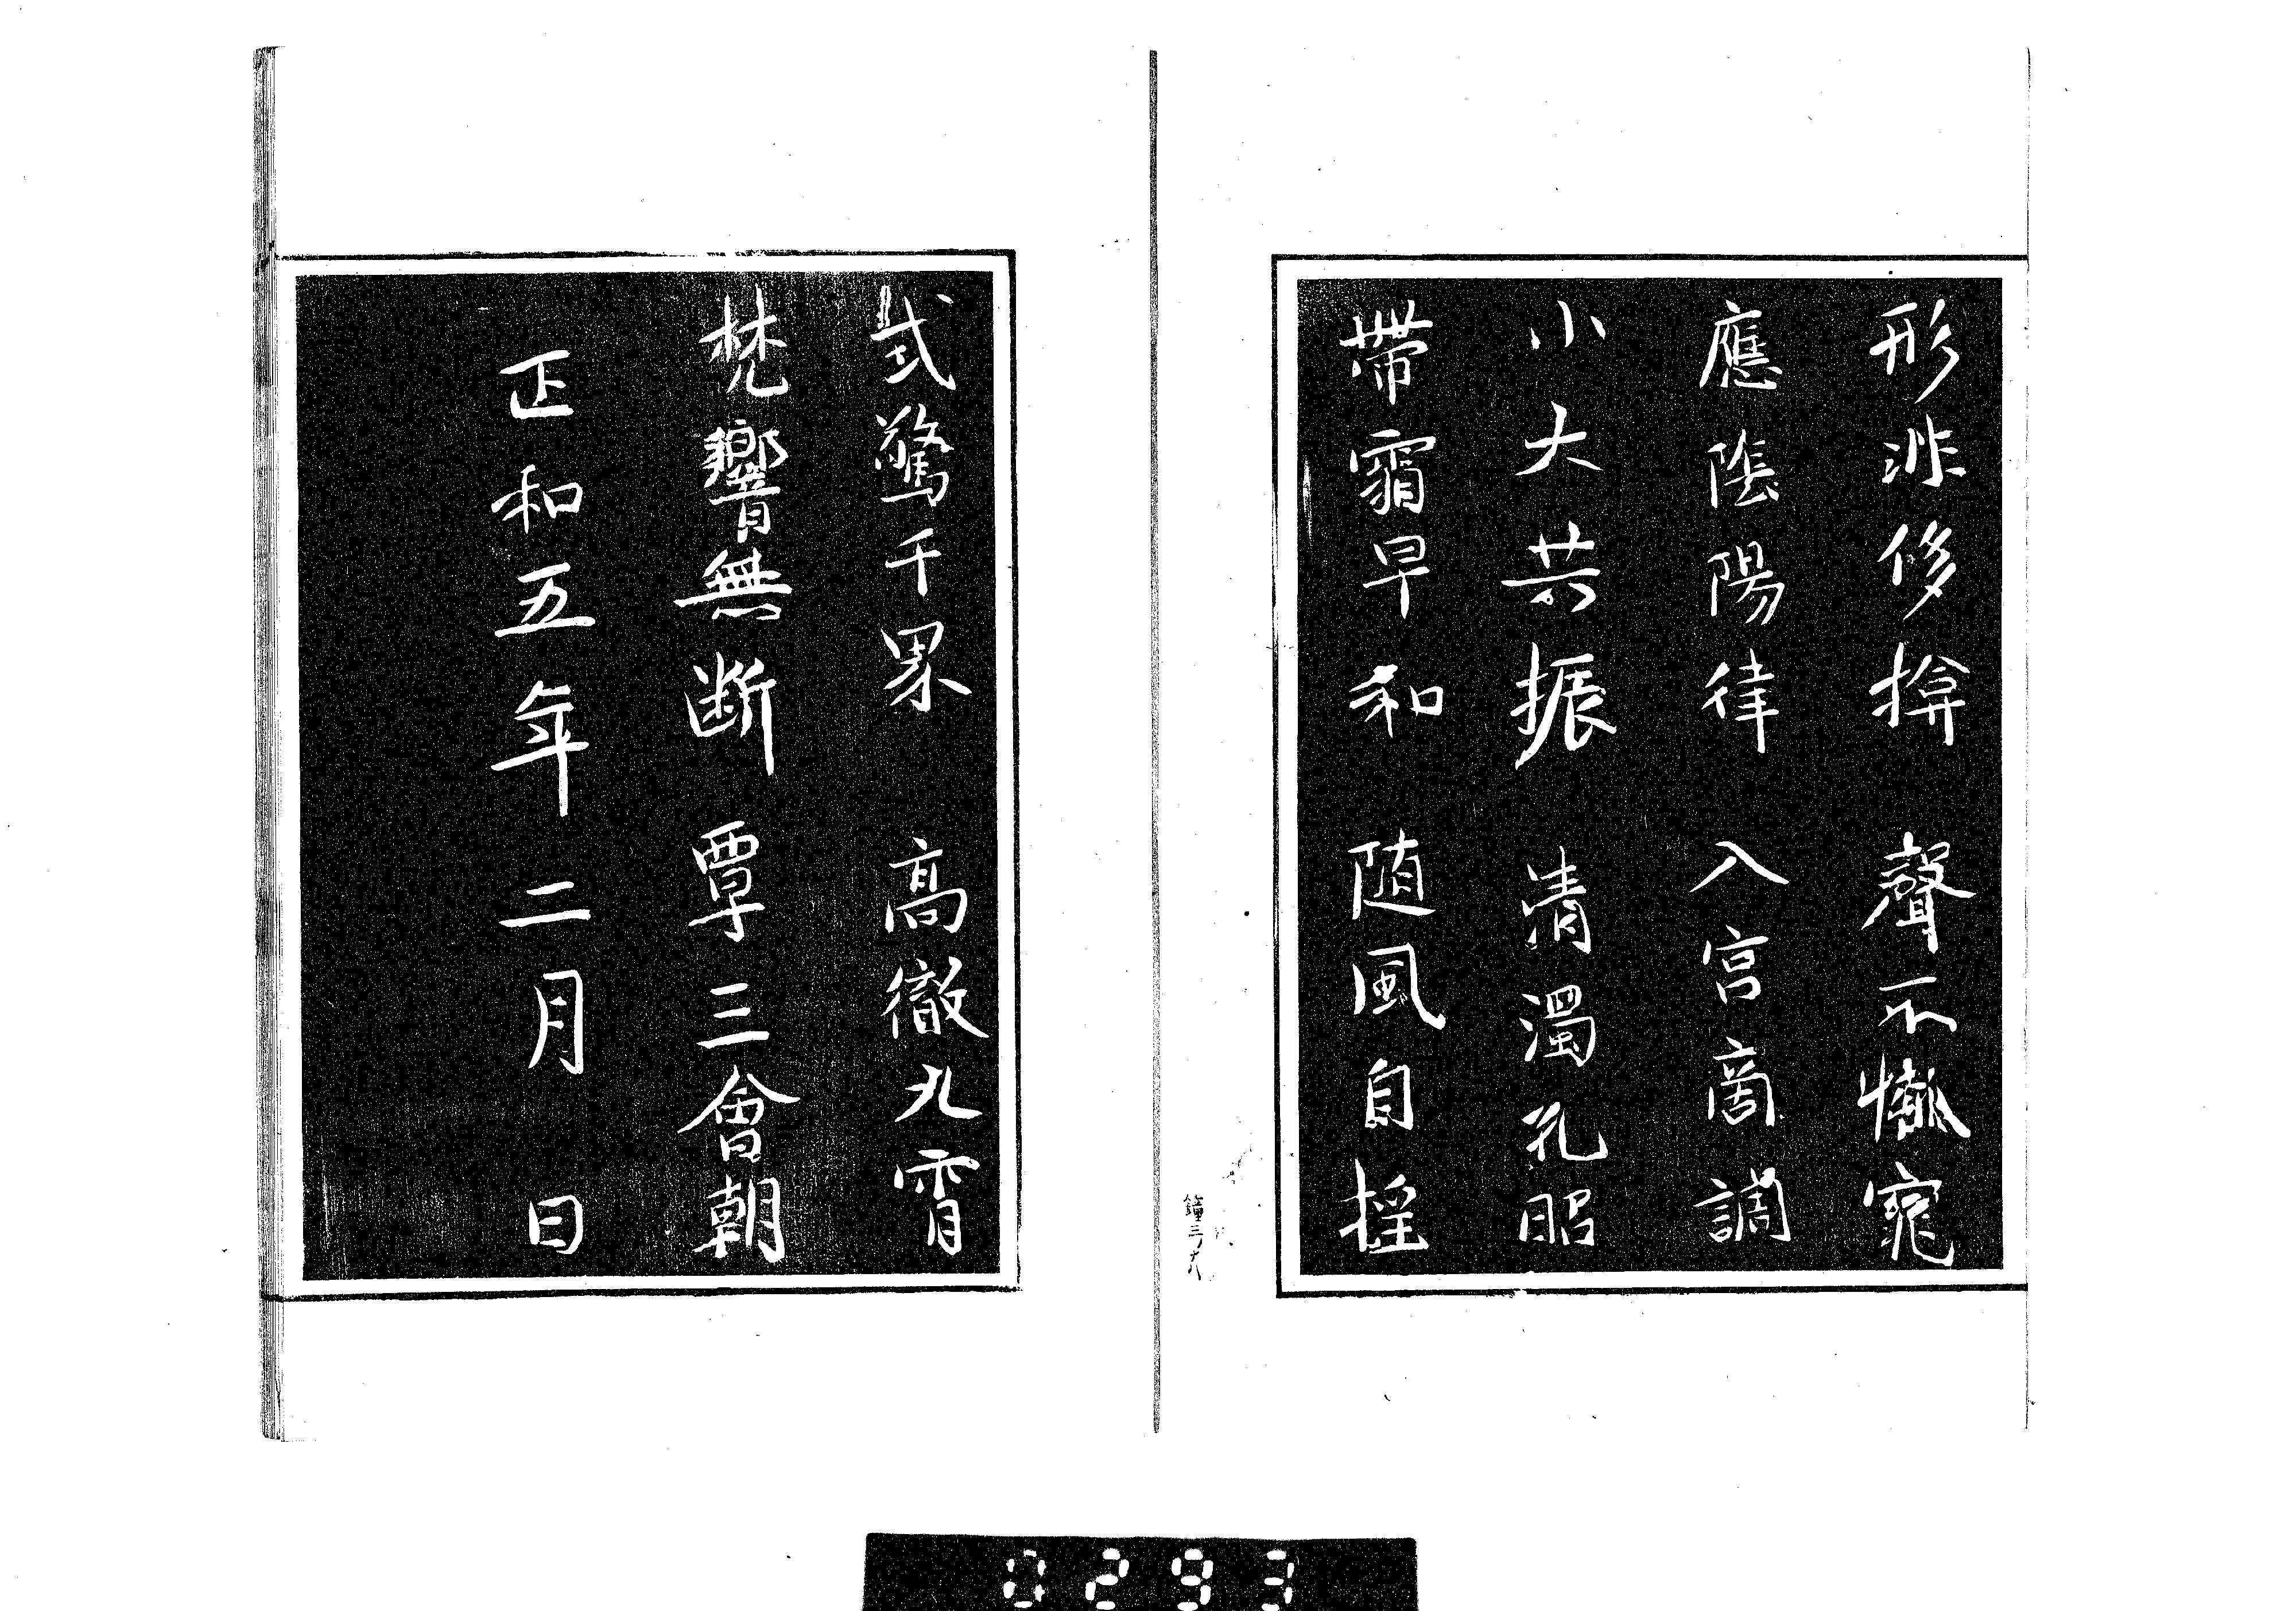 形非侈揜　聲不㯈窕
應陰陽律　入宮商調
小大共振　清濁孔昭
帶霜早和　随風自揺
式驚千界　高徹九霄
梵響無断　覃三會朝
正和五年二月　日
鐘三ノ十八
0293